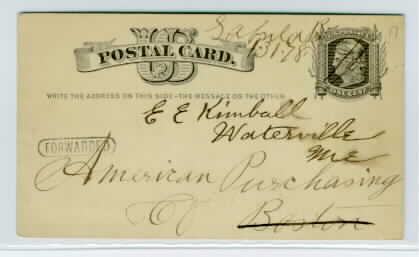 Sabula
1-31-78
U S
POSTAL CARD.
ONE CENT
WRITE THE ADDRESS ON THIS SIDE-THE MESSAGE ON THE OTHER
E E Kimball
Waterville
Me
FORWARDED
American Purchasing
Co
Boston